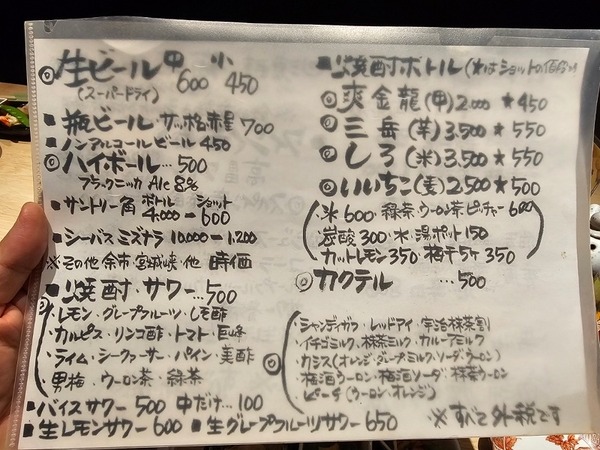 ◎生ビール 中 600 小 450
(スーパードライ)
■瓶ビール サッポロ赤星 700
■ノンアルコールビール 450
◎ハイボール…500
ブラックニッカ Alc 8%
■サントリー角 ボトル 4.000 ー ショット 600
■シーバス ミズナラ 10.000ー1.200
※その他 余市・宮城峡・他 時価
■焼酎・サワー…500
レモン・グレープフルーツ・しそ酢
カルピス・リンゴ酢・トマト・巨峰
ライム・シークァーサー・パイン・美酢
男梅・ウーロン茶・緑茶
■バイスサワー 500 中だけ…100
■生レモンサワー 600 ■生グレープフルーツサワー 650
■焼酎ボトル(★はショットの価格です
◎爽 金龍(甲) 2.000 ★450
◎三岳(芋) 3.500 ★550
◎しろ(米) 3.500 ★550
◎いいちこ(麦) 2.500 ★500
・氷 600 緑茶・ウーロン茶ピッチャー 600
・炭酸 300・水・湯ポット 150
・カットレモン 350 梅干5ケ 350
◎カクテル …500
シャンディガフ・レッドアイ・宇治抹茶割
・イチゴミルク、抹茶ミルク・カルーアミルク
・カシス(オレンジ・グレープ・ミルク・ソーダ・ウーロン)
・梅酒ウーロン・梅酒ソーダ・抹茶ウーロン
・ピーチ(ウーロン・オレンジ)
※すべて外税です